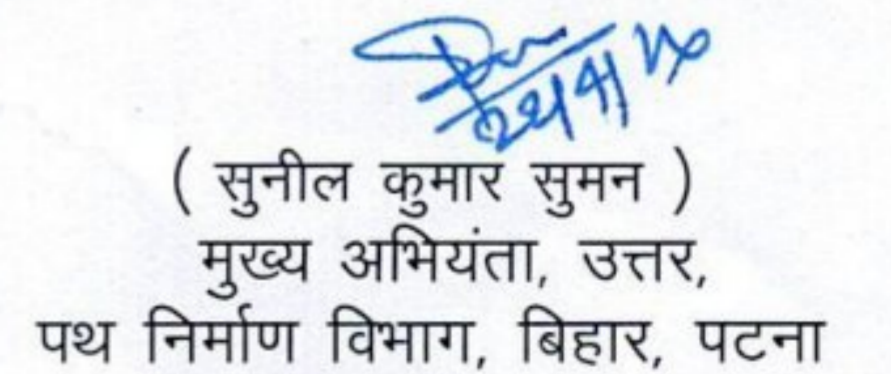 ( सुनील कुमार सुमन )
मुख्य अभियंता, उत्तर,
पथ निर्माण विभाग, बिहार, पटना